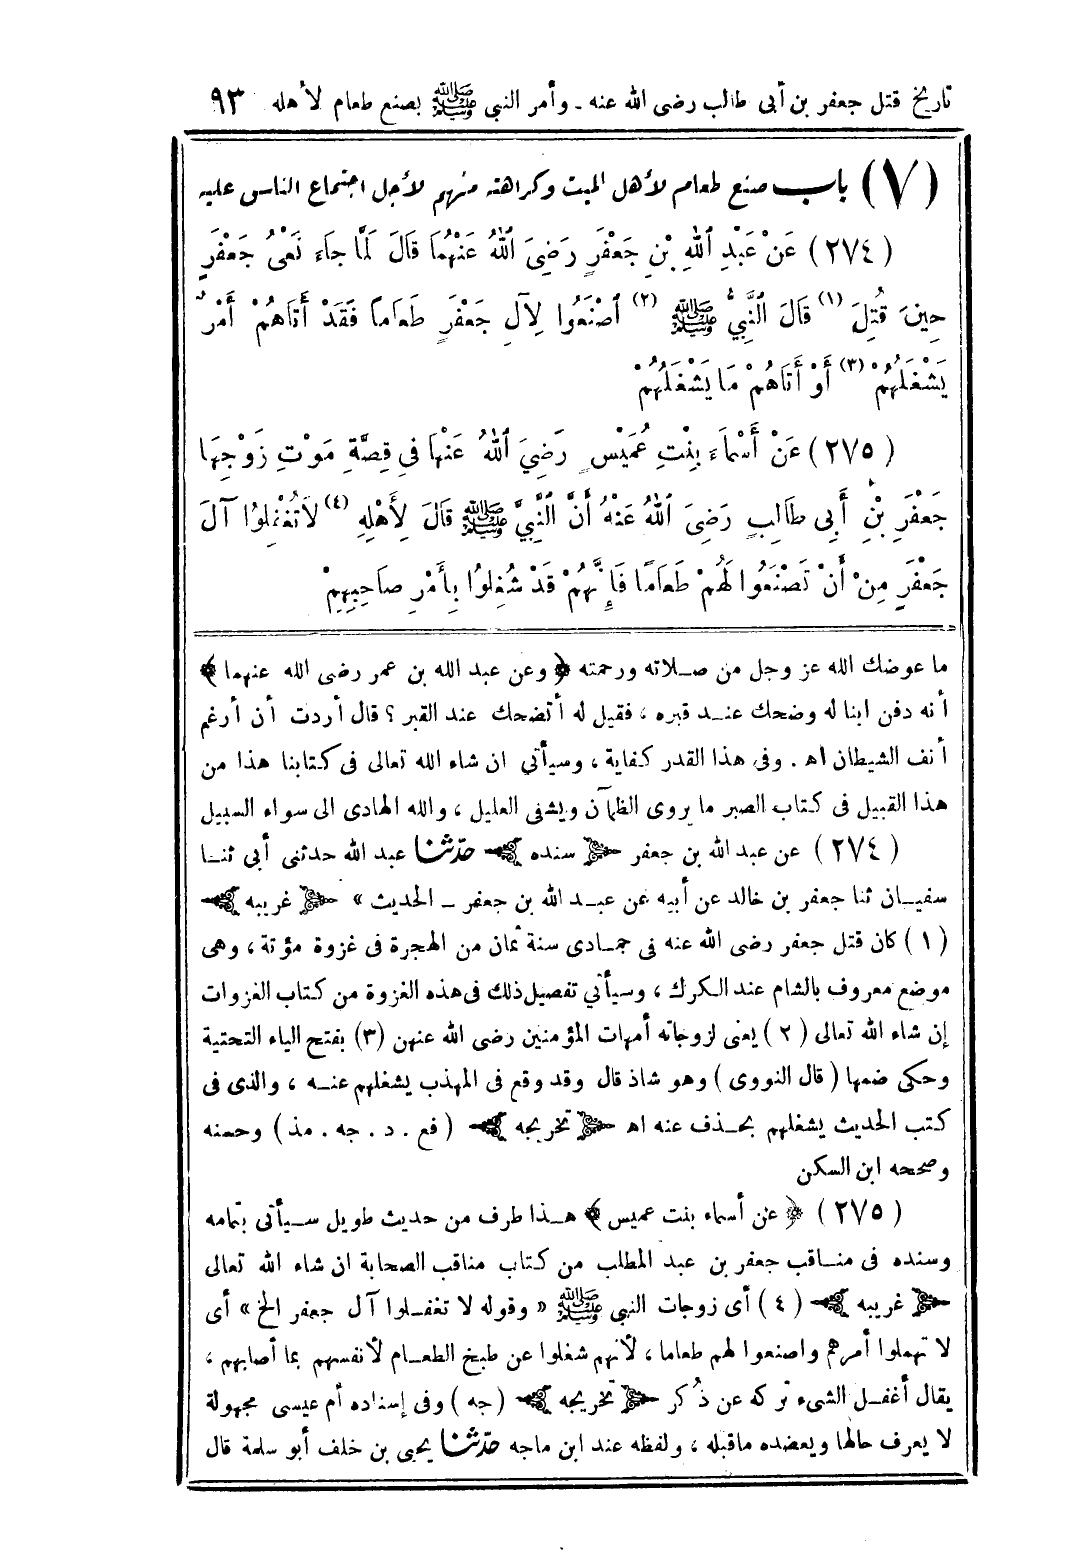 تاريخ قتل جعفر بن أبى طالب رضى الله عنه ـ وأمر النبى ﷺ بصنع طعام لأهله ٩٣
(٧) باب صنع طعام لأهل الميت وكراهته منهم لأجل اجتماع الناس عليه
(٢٧٤) عَنْ عَبْدِ اللهِ بْنِ جَعْفَرٍ رَضِىَ اللهُ عَنْهُمَا قَالَ لَمَّا جَاءَ نَعْىُ جَعْفَرٍ
حِينَ قُتِلَ (١) قَالَ النَّبِىُّ ﷺ (٢) اصْنَعُوا لِآلِ جَعْفَرٍ طَعَاماً فَقَدْ أَتَاهُمْ أَمْرٌ
يَشْغَلُهُمْ (٣) أَوْ أَتَاهُمْ مَا يَشْغَلُهُمْ
(٢٧٥) عَنْ أَسْمَاءَ بِنْتِ عُمَيْسٍ رَضِيَ اللهُ عَنْهَا فِى قِصَّةِ مَوْتِ زَوْجِهَا
جَعْفَرِ بْنِ أَبِى طَالِبٍ رَضِىَ اللهُ عَنْهُ أَنَّ النَّبِىَّ ﷺ قَالَ لِأَهْلِهِ (٤) لَا تُغْفِلُوا آلَ
جَعْفَرٍ مِنْ أَنْ تَصْنَعُوا لَهُمْ طَعَامًا فَإِنَّهُمْ قَدْ شُغِلُوا بِأَمْرِ صَاحِبِهِمْ
ما عوضك الله عز وجل من صلاته ورحمته ﴿ وعن عبد الله بن عمر رضى الله عنهما ﴾
أنه دفن ابنا له وضحك عند قبره ، فقيل له أتضحك عند القبر ؟ قال أردت أن أرغم
أنف الشيطان اه . وفى هذا القدر كفاية ، وسيأتى ان شاء الله تعالى فى كتابنا هذا من
هذا القبيل فى كتاب الصبر ما يروى الظمآن ويشفى العليل ، والله الهادى الى سواء السبيل
(٢٧٤) عن عبد الله بن جعفر ﴿ سنده ﴾ حدّثنا عبد الله حدثنى أبى ثنا
سفيان ثنا جعفر بن خالد عن أبيه عن عبد الله بن جعفر ـ الحديث » ﴿ غريبه ﴾
(١) كان قتل جعفر رضى الله عنه فى جمادى سنة ثمان من الهجرة فى غزوة مؤتة ، وهى
موضع معروف بالشام عند الكرك ، وسيأتى تفصيل ذلك فى هذه الغزوة من كتاب الغزوات
إن شاء الله تعالى (٢) يعنى لزوجاته أمهات المؤمنين رضى الله عنهن (٣) بفتح الياء التحتية
وحكى ضمها (قال النووى) وهو شاذ قال وقد وقع فى المهذب يشغلهم عنه ، والذى فى
كتب الحديث يشغلهم بحذف عنه اه ﴿ تخريجه ﴾ (فع . د . جه . مذ) وحسنه
وصححه ابن السكن
(٢٧٥) ﴿ عن أسماء بنت عميس ﴾ هذا طرف من حديث طويل سيأتى بتمامه
وسنده فى مناقب جعفر بن عبد المطلب من كتاب مناقب الصحابة ان شاء الله تعالى
﴿ غريبه ﴾ (٤) أى زوجات النبى ﷺ « وقوله لا تغفلوا آل جعفر الخ » أى
لا تهملوا أمرهم واصنعوا لهم طعاما ، لأنهم شغلوا عن طبخ الطعام لأنفسهم بما أصابهم ،
يقال أغفل الشىء تركه عن ذُكر ﴿ تخريجه ﴾ (جه) وفى إسناده أم عيسى مجهولة
لا يعرف حالها ويعضده ماقبله ، ولفظه عند ابن ماجه حدّثنا يحيى بن خلف أبو سلمة قال